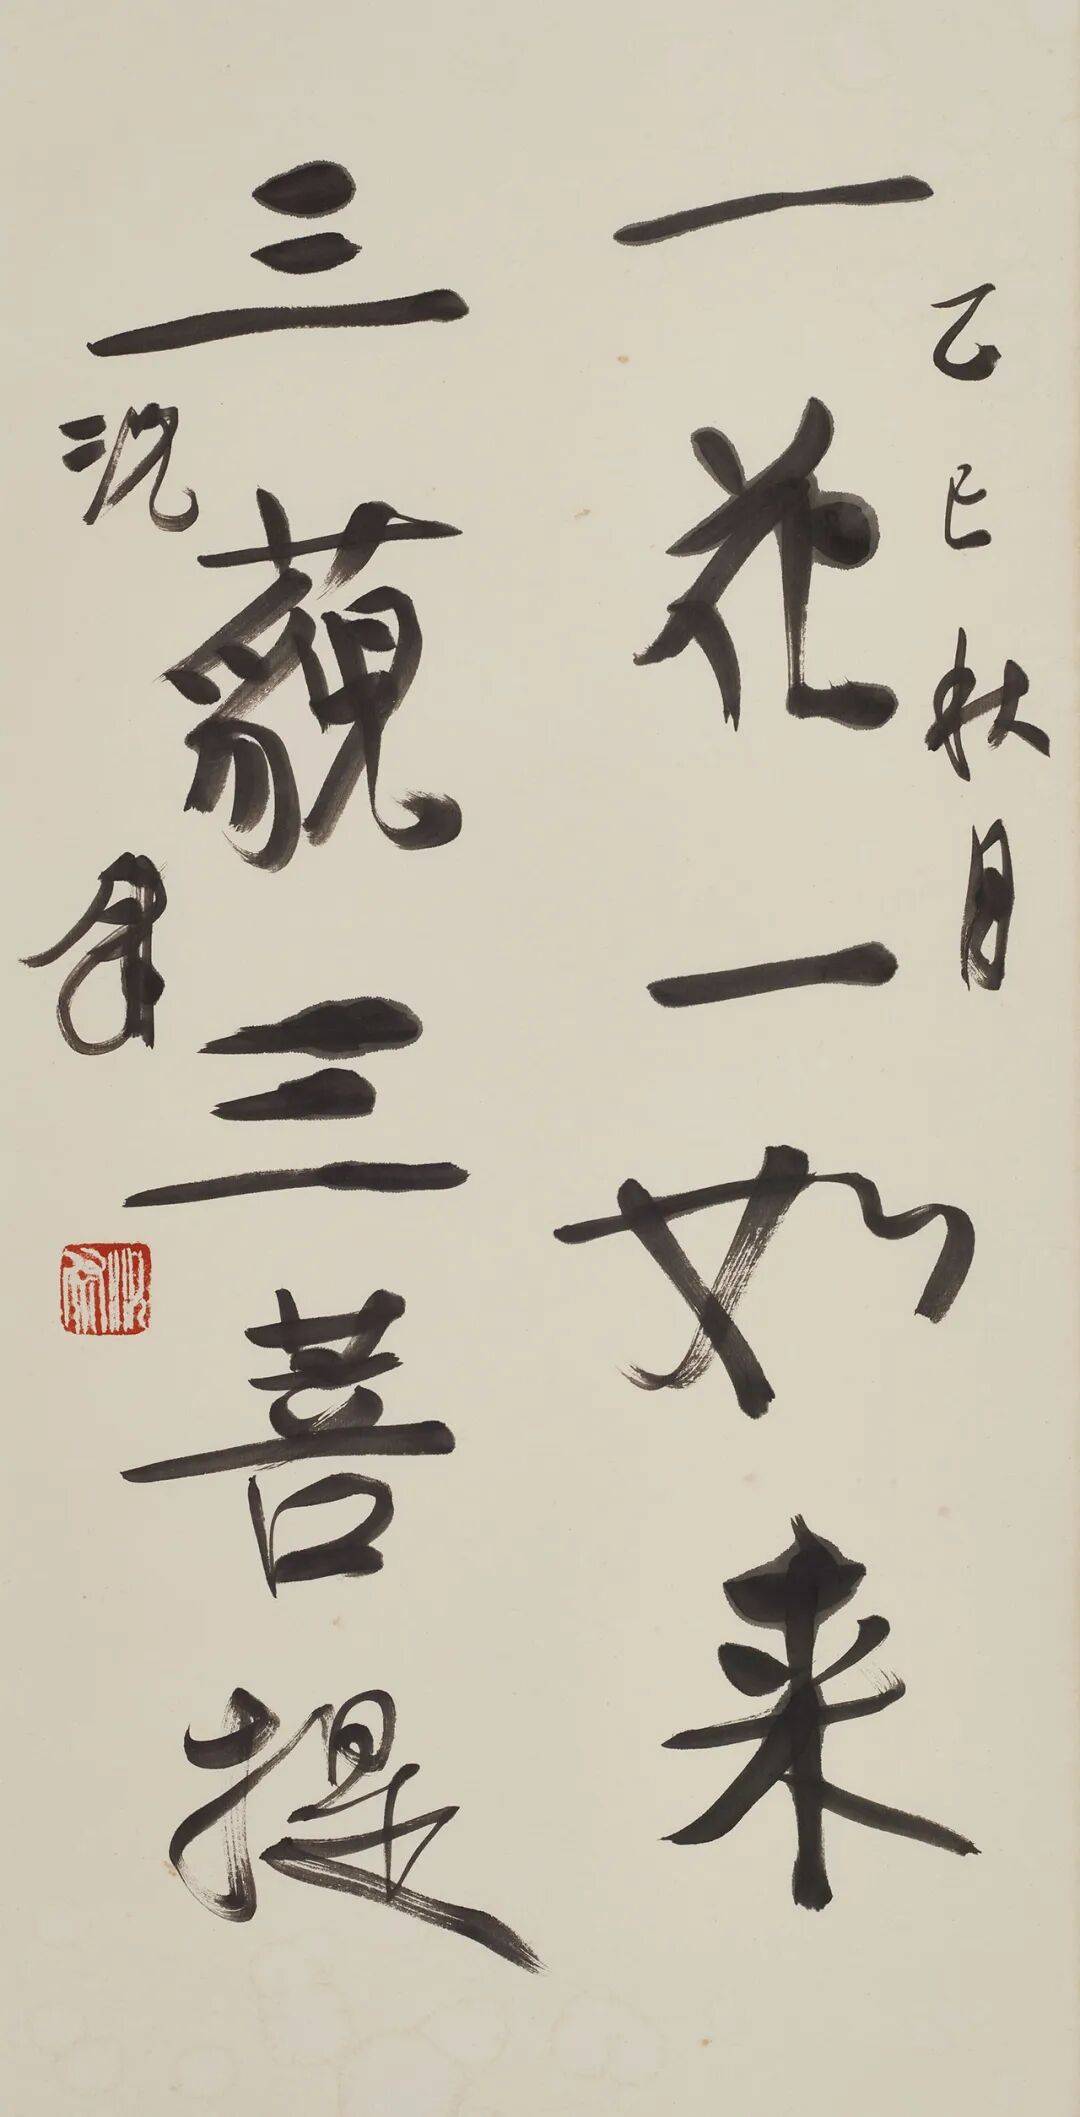 乙巳秋月
一花一如来
三藐三菩提